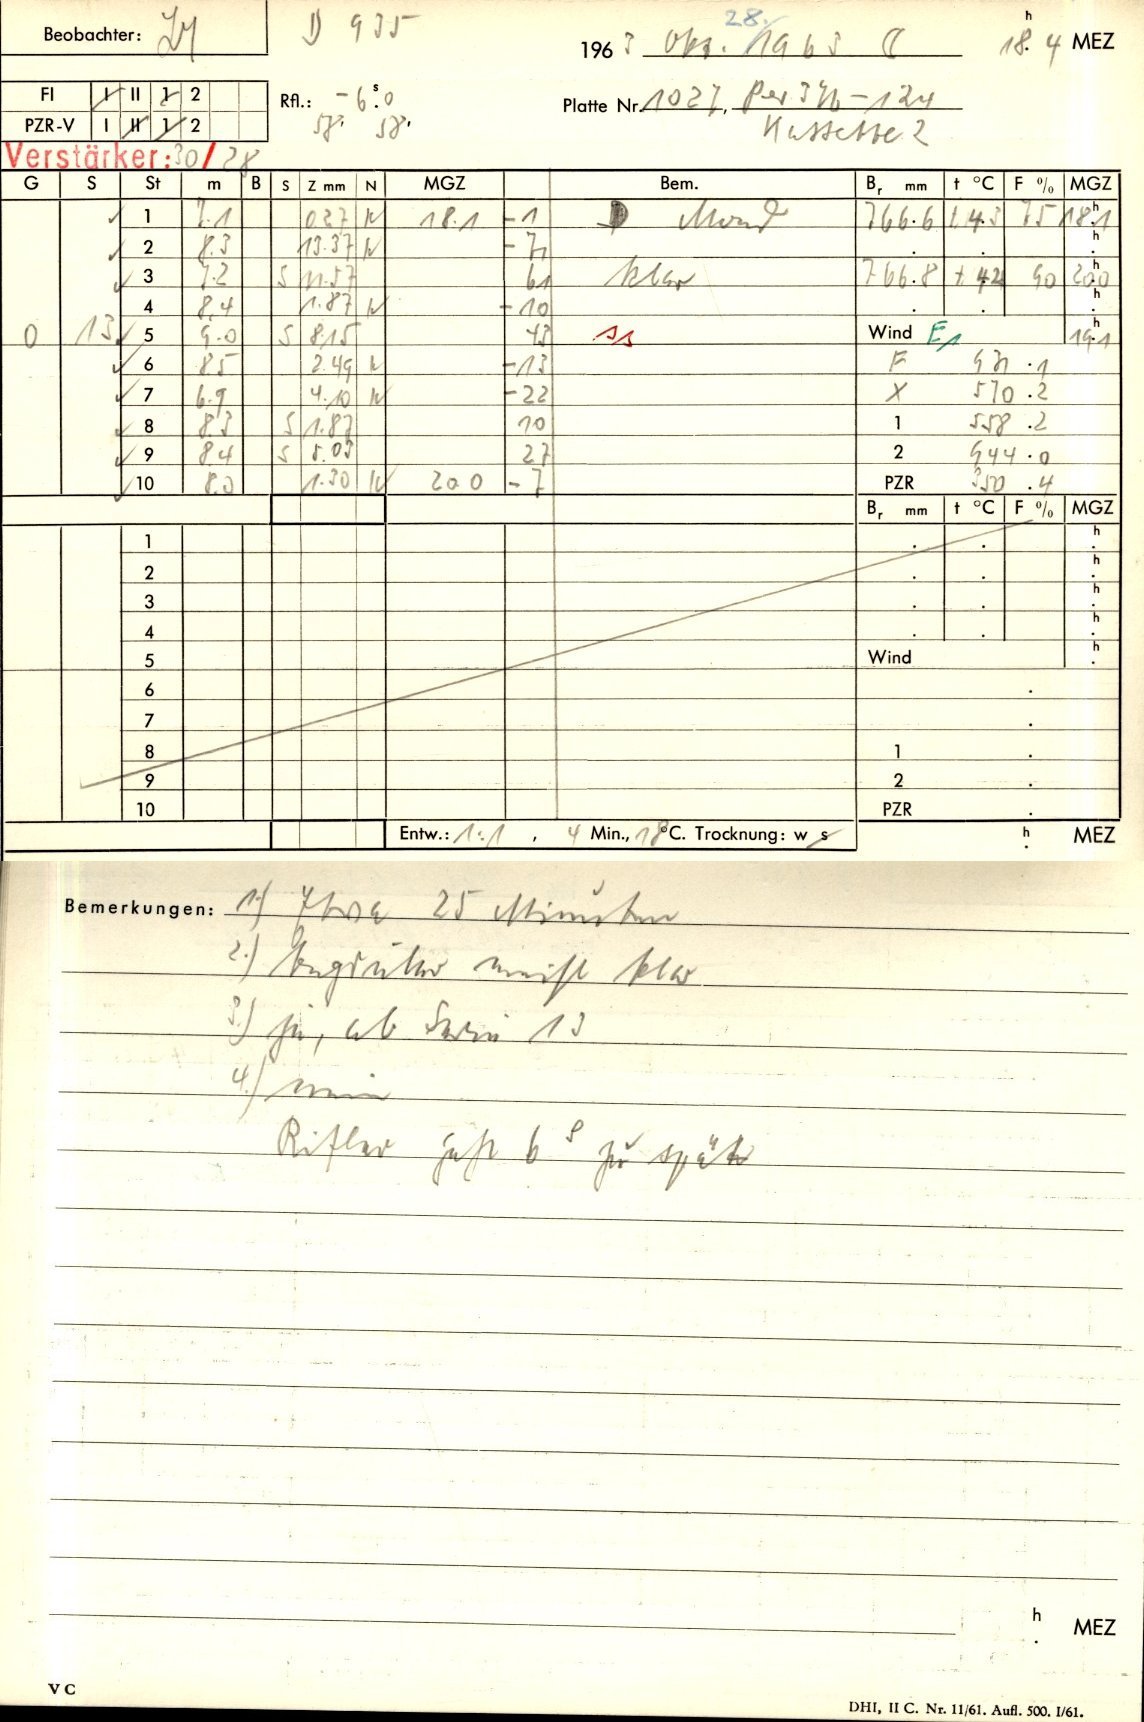 Beobachter:
D 935
28.
196 3 Okt. 1963
h
18. 4 MEZ
FI I II 1 2
Rfl.: -6.0 s
Platte Nr. 1027,
PZR-V I II 1 2
58. 58.
Kassette 2
Verstärker: 30/28
G S St m B S Z mm N MGZ Bem. Br mm t °C F % MGZ
1 7.1 0.27 N 18.1 -1 Mond 766.6 +4.3 75 18.1 h
2 8.3 13.37 N -71
3 7.2 S 11.57 61 klar 766.8 +4.2 90 20.0 h
4 8.4 1.87 N -10
0 13 5 9.0 S 8.15 43 Wind E1 19.1 h
6 8.5 2.49 N -13 F 931.1
7 6.9 4.10 N -22 X 570.2
8 8.3 S 1.87 10 1 558.2
9 8.4 S 5.03 27 2 944.0
10 8.0 1.30 N 20.0 -7 PZR 350.4
Br mm t °C F % MGZ
1 h
2 h
3 h
4 h
5 Wind h
6
7
8 1
9 2
10 PZR
Entw.: 1:1 , 4 Min., 18°C. Trocknung: w s h MEZ
Bemerkungen: 1.) Etwa 25 Minuten
2.) meist klar
3.) ja, ab Serie 13
4.) nein
Rifler geht 6 s zu spät
h
MEZ
V C
DHI, II C. Nr. 11/61. Aufl. 500. I/61.